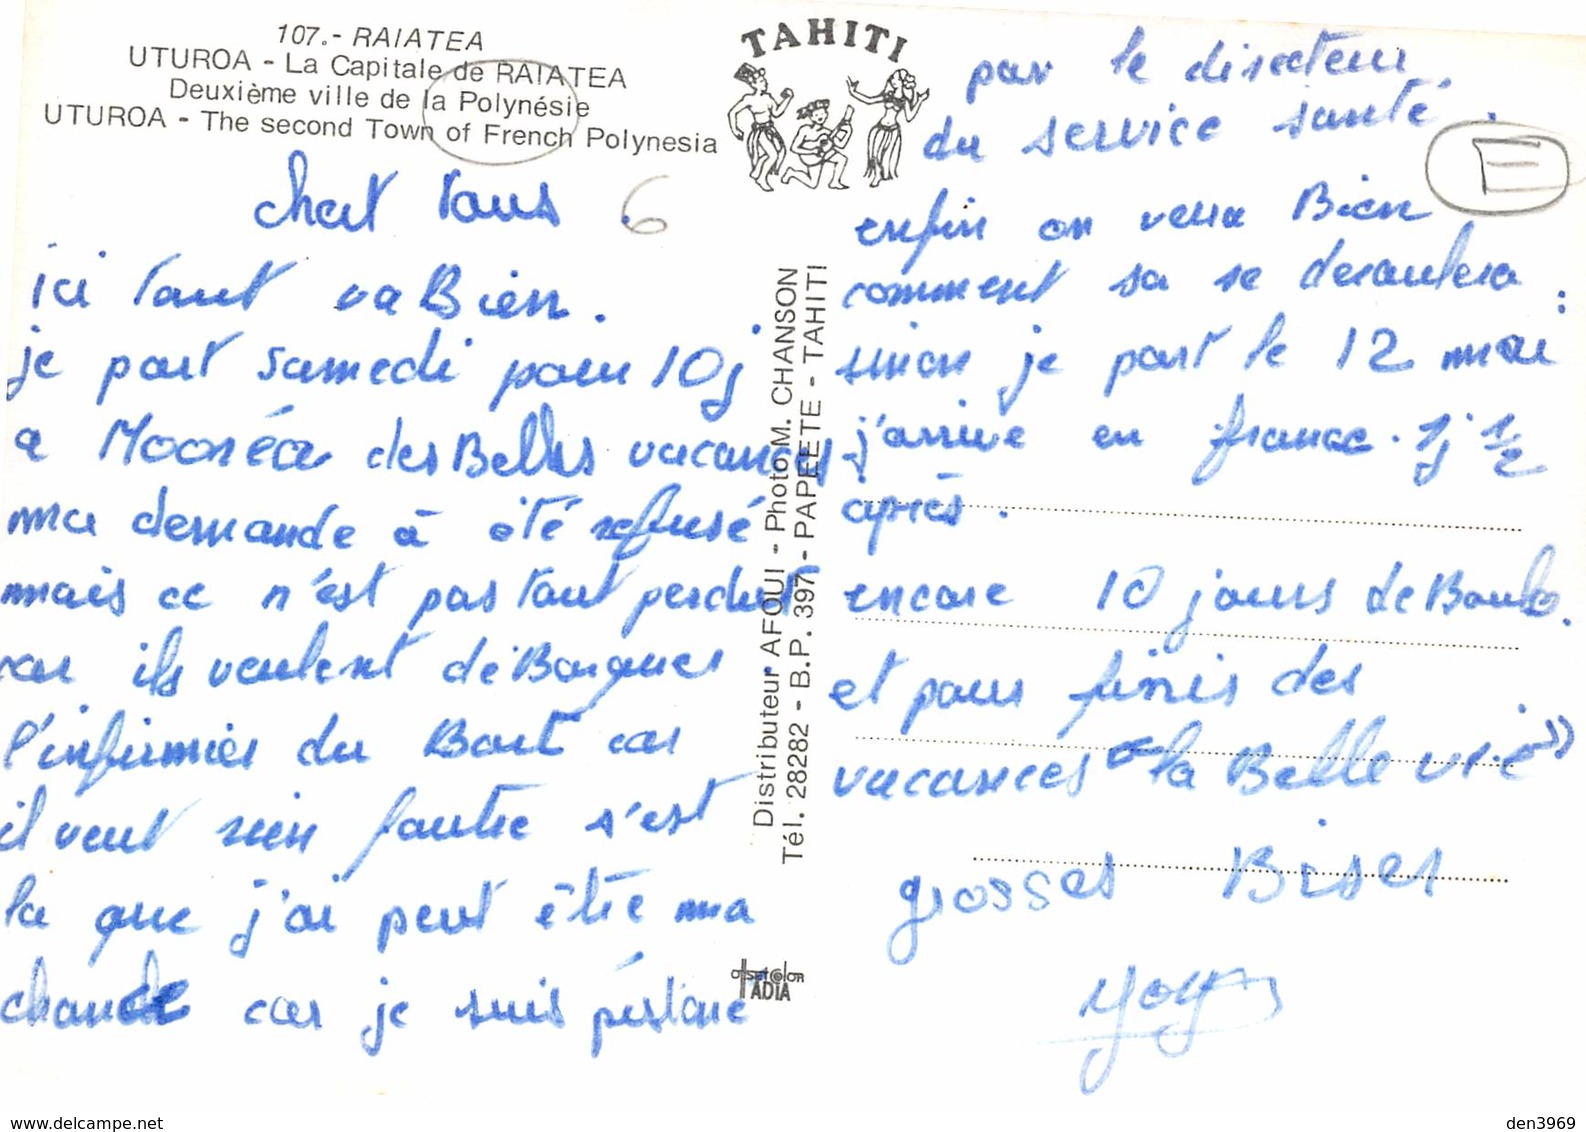 107.- RAIATEA
UTUROA - La Capitale de RAIATEA
Deuxième ville de la Polynésie
UTUROA - The second Town of French Polynesia
TAHITI
6
ici tout va Bien.
je part samedi pour 10j
a Mooréa des Belles vacances
ma demande à été refusé
mais ce n'est pas tout perdut
car ils veulent
l'infirmier du Bort car
il veut rien foutre s'est
la que j'ai peut être ma
chance car je suis
Distributeur AFOUI - Photo M. CHANSON
Tél. 28282 - B.P. 397 - PAPEETE - TAHITI
offset color
TADIA
E
par le directeur
du service santé.
enfin on verra Bien
comment sa se deroulera :
sinon je part le 12 mai
j'arrive en france. 1j 1/2
après.
encore 10 jours de Boulo.
et pour finir des
vacances "la Belle vie"
grosses Bises
delcampe.net
den3969